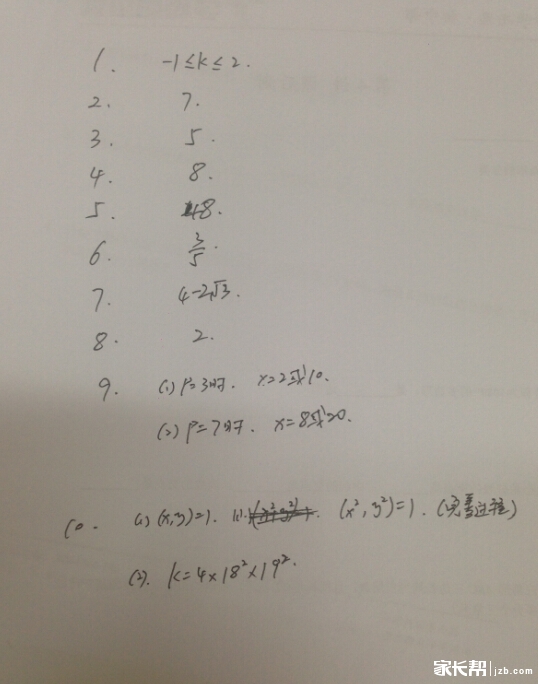 1. -1≤k≤2.
2. 7.
3. 5.
4. 8.
5. 48.
6. 3/5.
7. 4-2√3.
8. 2.
9. (1) P=3时. x=2或10.
(2) P=7时. x=8或20.
10. (1) (x,y)=1. (x²,y²)=1. (完善过程)
(2). k=4×18²×19².
家长帮 jzb.com